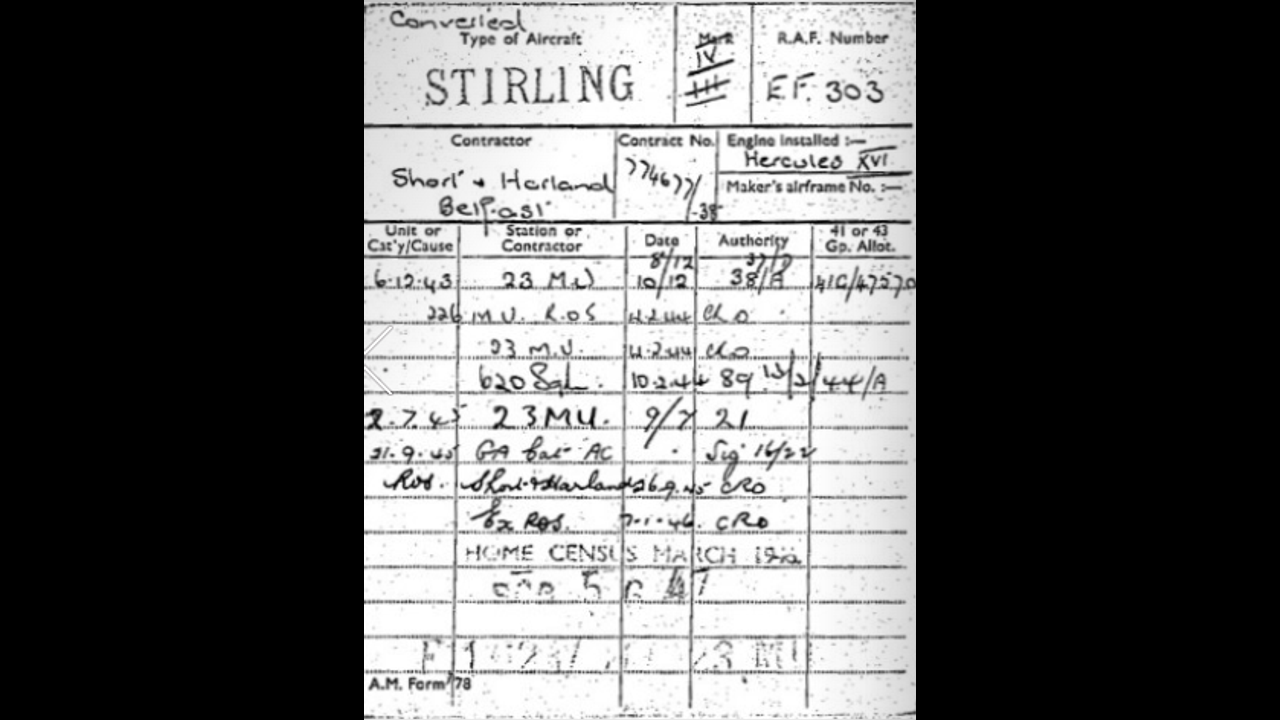 Converted
Type of Aircraft
Mark
R.A.F. Number
STIRLING
IV
III
EF. 303
Contractor
Contract No.
Engine installed :—
Hercules XVI
Short & Harland
Belfast
774677/
-38
Maker's airframe No. :—
Unit or Cat'y/Cause
Station or Contractor
Date
Authority
41 or 43 Gp. Allot.
8/12
6.12.43 23 MU 10/12 38/A 41G/47570
226 M.U. R.O.S 4.2.44
23 M.U. 4.2.44
620 Sqn. 10.2.44 89 13/2/44/A
2.7.45 23 MU. 9/7 21
21.9.45 GA Cat AC Sig 16/22
ROS. Short & Harland 26.9.45 CRO
Ex ROS. 7.1.46. CRO
HOME CENSUS MARCH
5 6 47
23 MU
A.M. Form 78